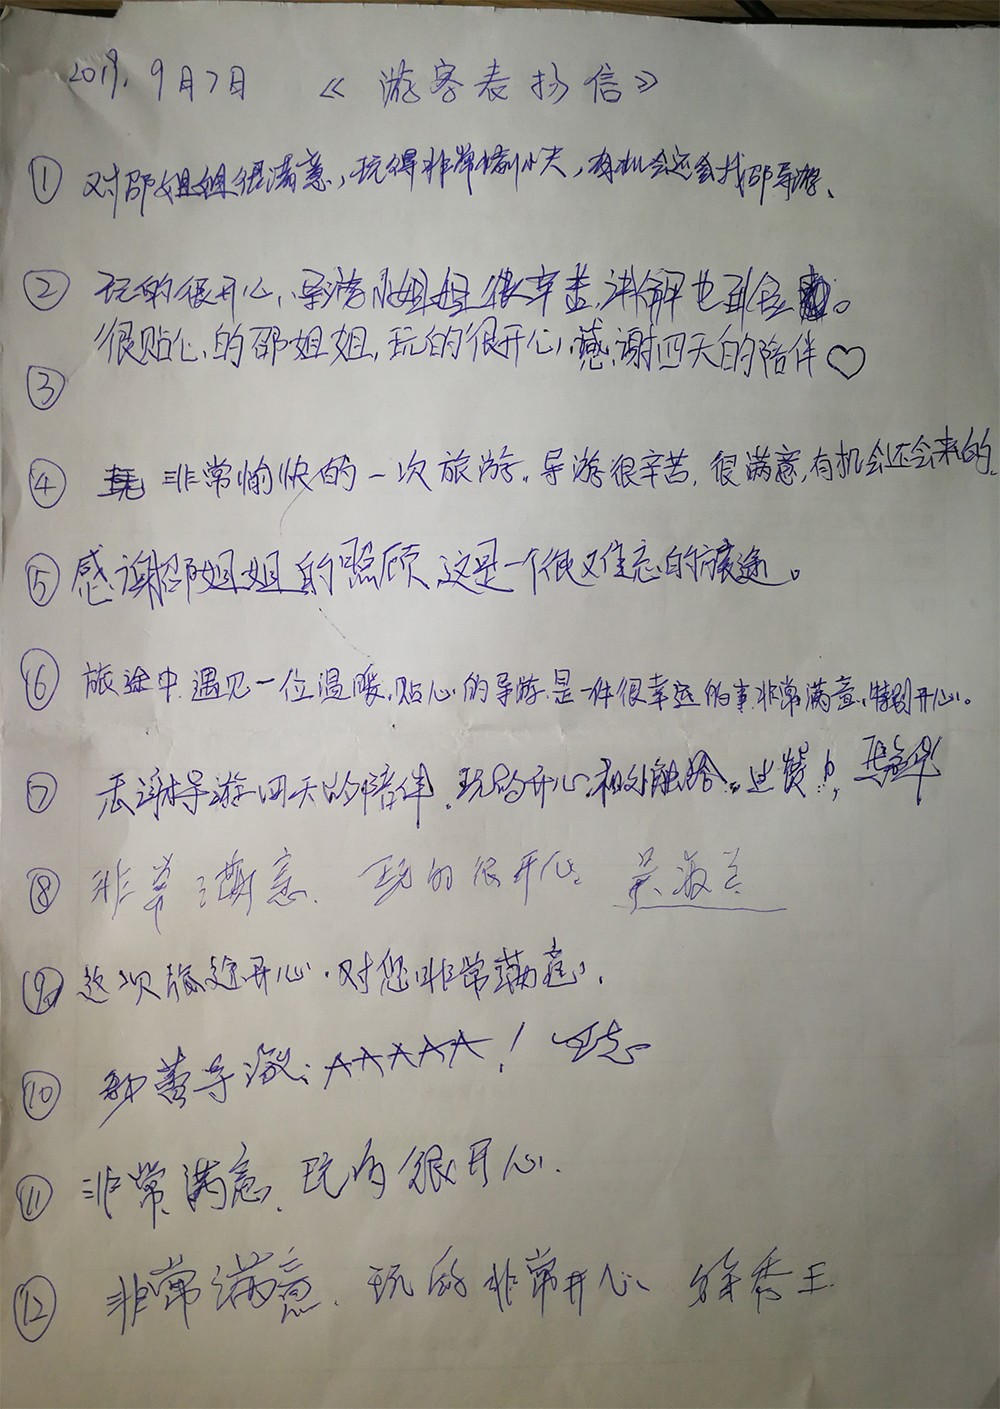 2019.9月7日 《游客表扬信》
① 对邵姐姐很满意,玩得非常愉快,有机会还会找邵导游、
② 玩的很开心、导游小姐姐很辛苦,讲解也到位。
很贴心的邵姐姐,玩的很开心,感谢四天的陪伴♡
③
④ 非常愉快的一次旅游。导游很辛苦,很满意,有机会还会来的.
⑤ 感谢邵姐姐的照顾,这是一个很难忘的旅途。
⑥ 旅途中遇见一位温暖、贴心的导游是一件很幸运的事.非常满意、特别开心。
⑦ 感谢导游四天的陪伴.玩的开心
⑧ 非常满意.玩的很开心.
⑨ 这次旅途开心.对您非常满意.
⑩ 导游:AAAAA!
⑪ 非常满意.玩的很开心.
⑫ 非常满意.玩的非常开心、徐秀玉